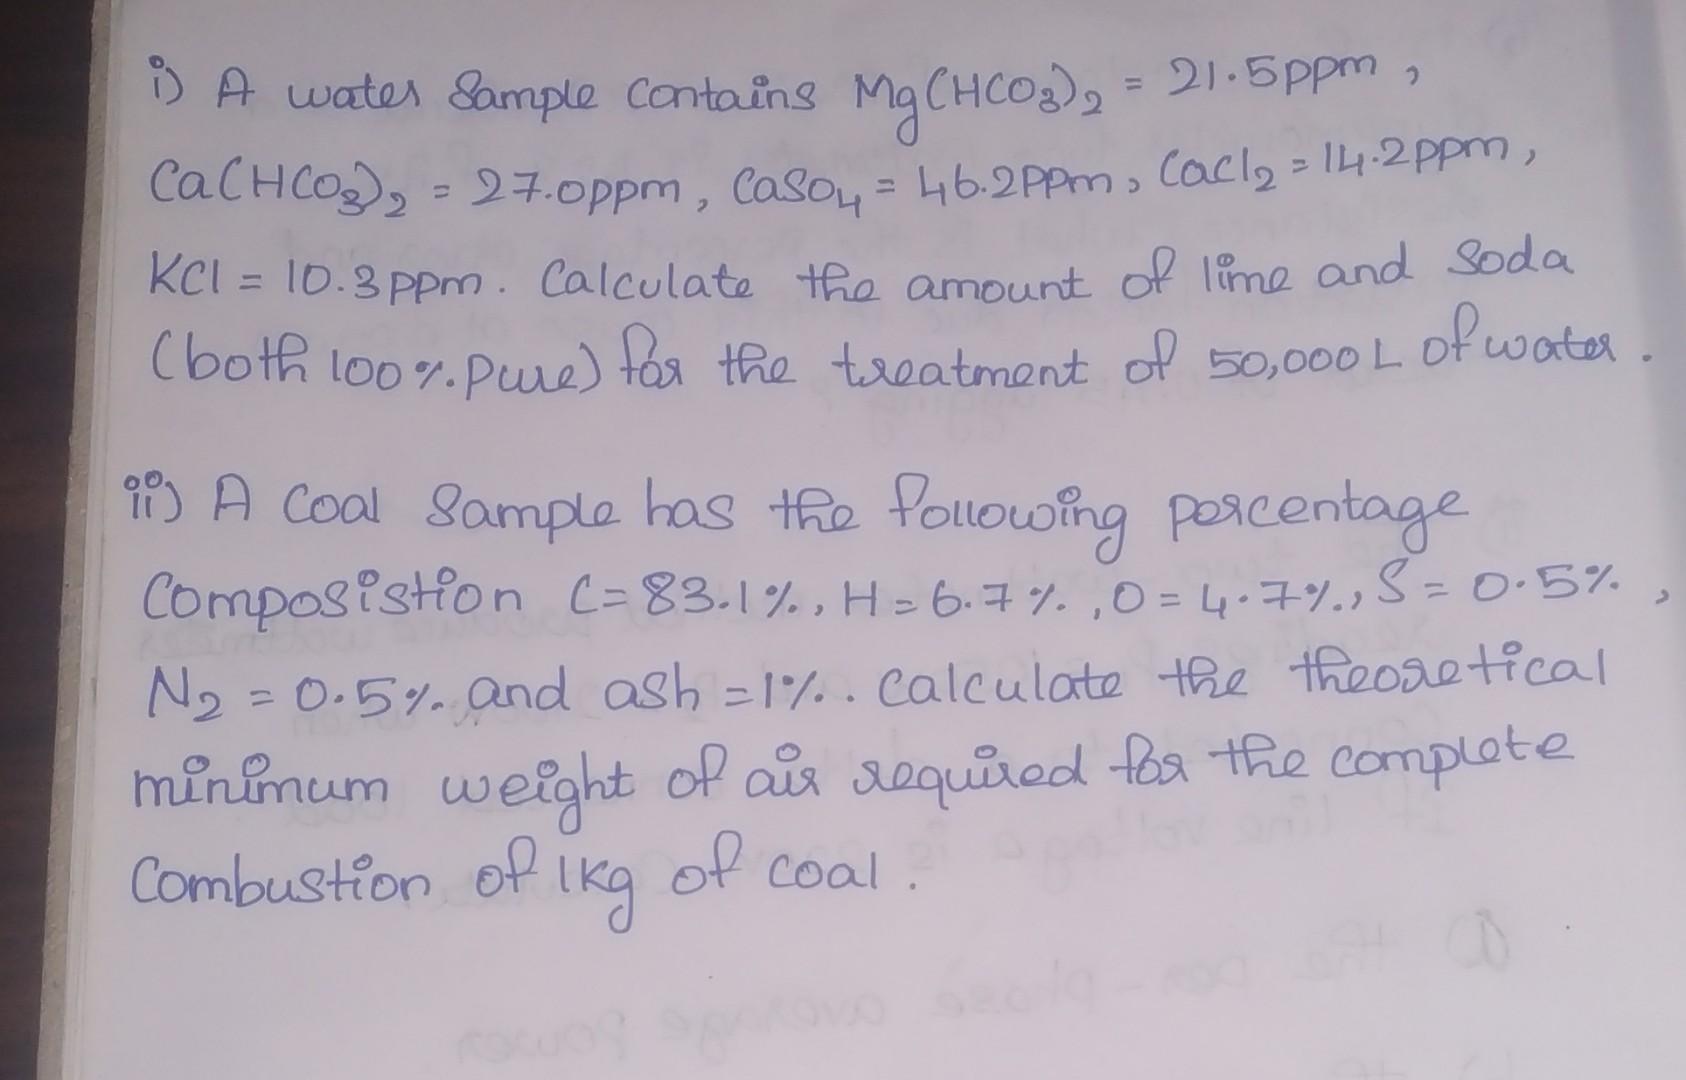 i) A water Sample contains Mg(HCO3)2 = 21.5ppm,
Ca(HCO3)2 = 27.0ppm, CaSO4 = 46.2ppm, CaCl2 = 14.2ppm,
KCl = 10.3ppm. Calculate the amount of lime and Soda
(both 100%. Pure) for the treatment of 50,000L of water.
ii) A Coal Sample has the following percentage
Composistion C=83.1%., H=6.7%., O=4.7%., S=0.5%.,
N2 = 0.5%. and ash =1%.. Calculate the theoretical
minimum weight of air required for the complete
Combustion of 1kg of coal.
① the per-phase average Power